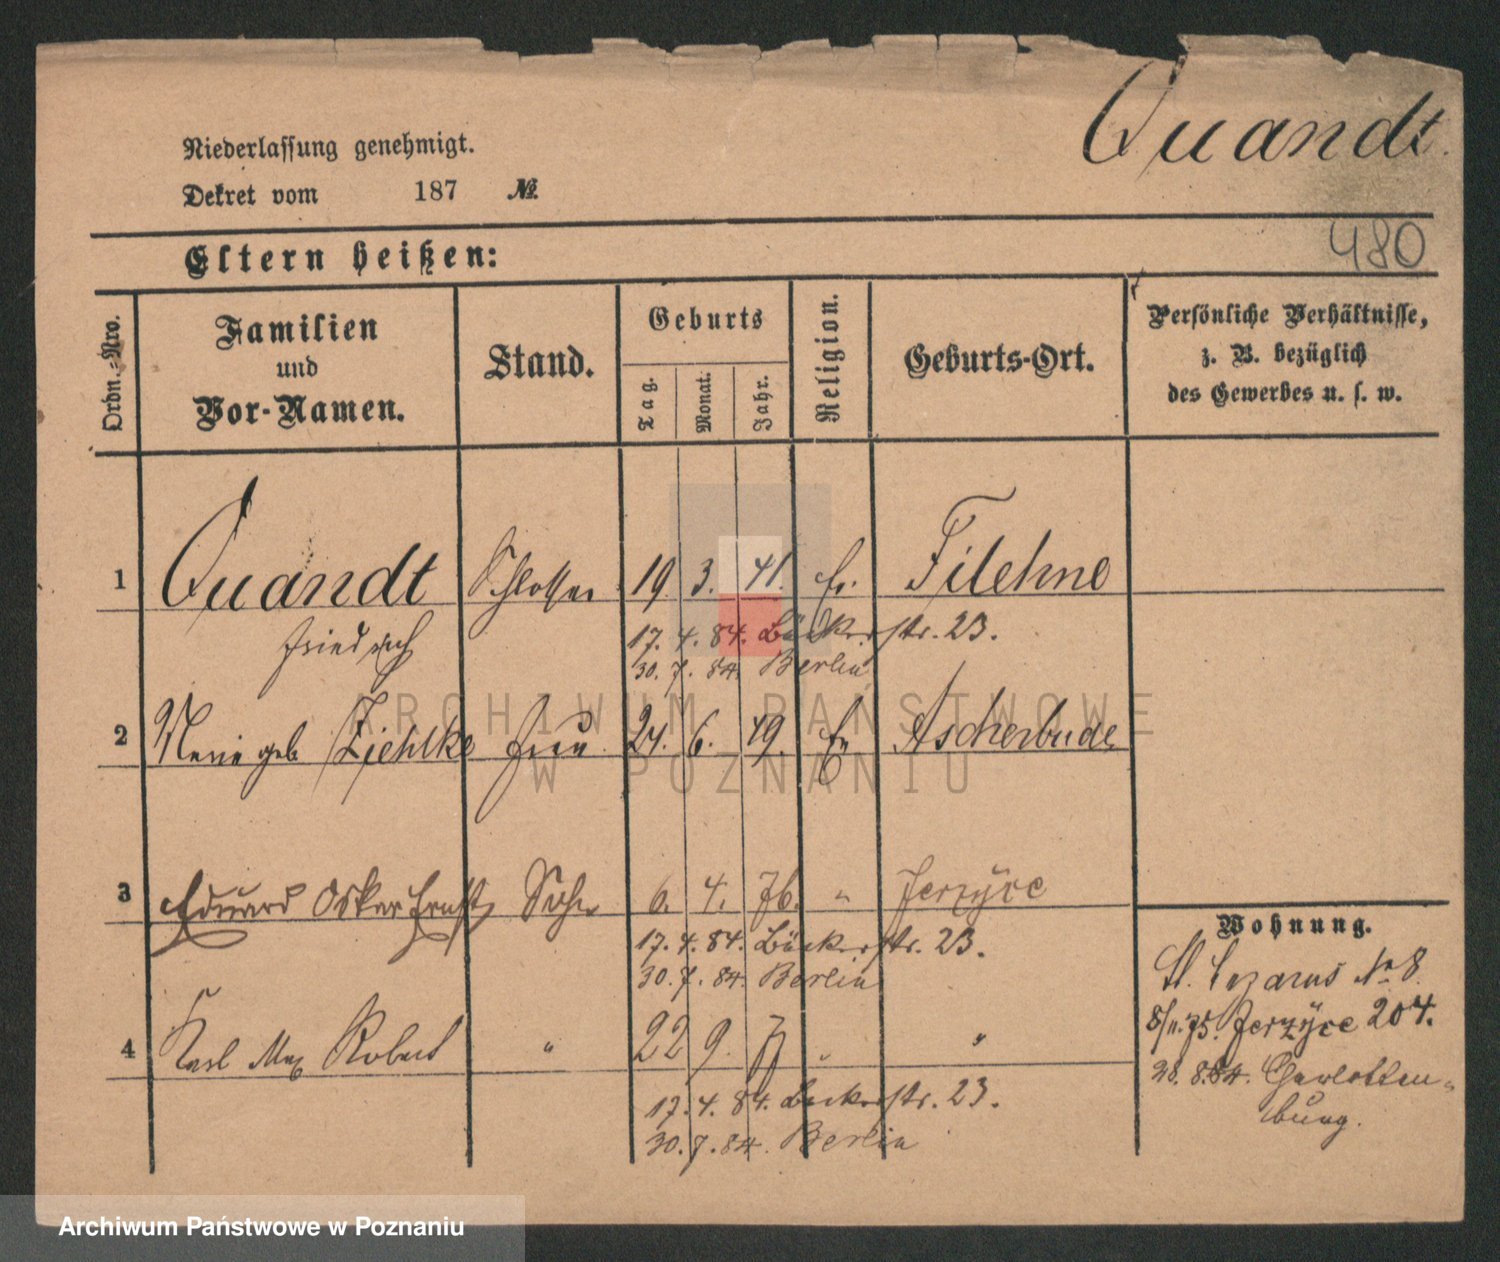 Quandt.
Niederlassung genehmigt.
Dekret vom 187 №
480
Eltern heißen:
Ordn.-Nro.
Familien
und
Vor-Namen.
Stand.
Geburts
Tag.
Monat.
Jahr.
Religion.
Geburts-Ort.
Persönliche Verhältnisse,
z. B. bezüglich
des Gewerbes u. s. w.
1 Quandt Schlosser 19. 3. 41. Ev. Filehne
Friedrich 17. 4. 84. Bäckerstr. 23.
30. 7. 84. Berlin
2 Marie geb Ziehlke Frau 24. 6. 49. Ev Ascherbude
3 Eduard Oskar Ernst Sohn 6. 4. 76. " Jerzyce
17. 4. 84. Bäckerstr. 23.
30. 7. 84. Berlin
4 Karl Max Robert " 22 9. 77 " "
17. 4. 84. Bäckerstr. 23.
30. 7. 84. Berlin
Wohnung.
St. Lazarus No 8.
8/11. 75. Jerzyce 204.
28. 8. 84. Charlotten-
burg.
ARCHIWUM PAŃSTWOWE
W POZNANIU
Archiwum Państwowe w Poznaniu